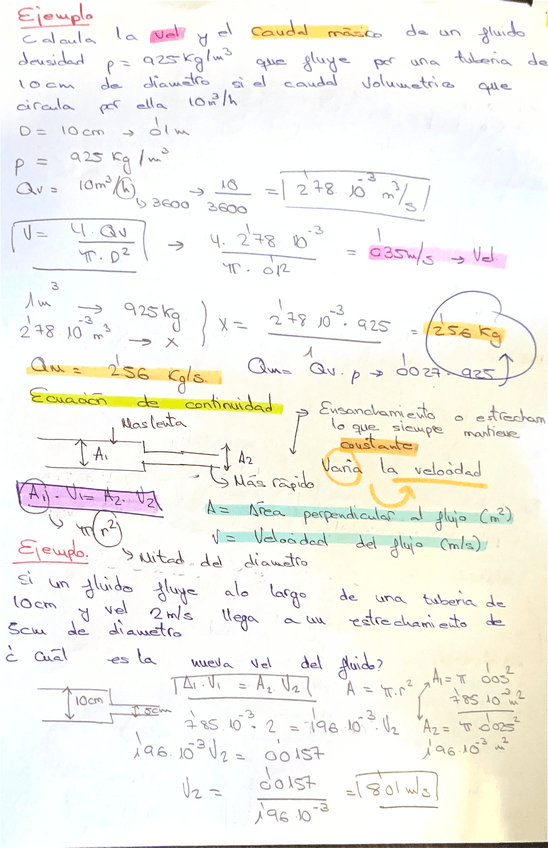 Ejemplo
Calcula la vel y el caudal másico de un fluido
densidad ρ = 925 kg/m³ que fluye por una tuberia de
10cm de diametro si el caudal volumetrico que
circula por ella 10m³/h
D = 10cm → 0'1m
ρ = 925 kg/m³
Qv = 10m³/h → 3600 → 10/3600 = 2'78·10⁻³ m³/s
V = 4·Qv/π·D² → 4·2'78·10⁻³/π·0'1² = 0'35m/s → Vel.
1m³ → 925kg
2'78·10⁻³ m³ → x } x = 2'78·10⁻³·925 = 2'56 kg
Qm = 2'56 kg/s. Qm = Qv·ρ → 0'0027·925
Ecuación de continuidad → Ensanchamiento o estrecham
lo que siempre mantiene
constante
Mas lenta
A₁ A₂
Varia la velocidad
→ Más rápido
A₁·V₁ = A₂·V₂
π r² → Mitad del diametro
A = Área perpendicular al flujo (m²)
V = Velocidad del flujo (m/s)
Ejemplo.
Si un fluido fluye a lo largo de una tuberia de
10cm y vel 2m/s llega a un estrechamiento de
5cm de diametro
¿ Cuál es la nueva vel del fluido?
10cm 5cm
A₁·V₁ = A₂·V₂ A = π·r²
A₁ = π 0'05²
7'85·10⁻³ m²
A₂ = π 0'025²
1'96·10⁻³ m²
7'85·10⁻³·2 = 1'96·10⁻³·V₂
1'96·10⁻³ V₂ = 0'0157
V₂ = 0'0157/1'96·10⁻³ = 8'01m/s